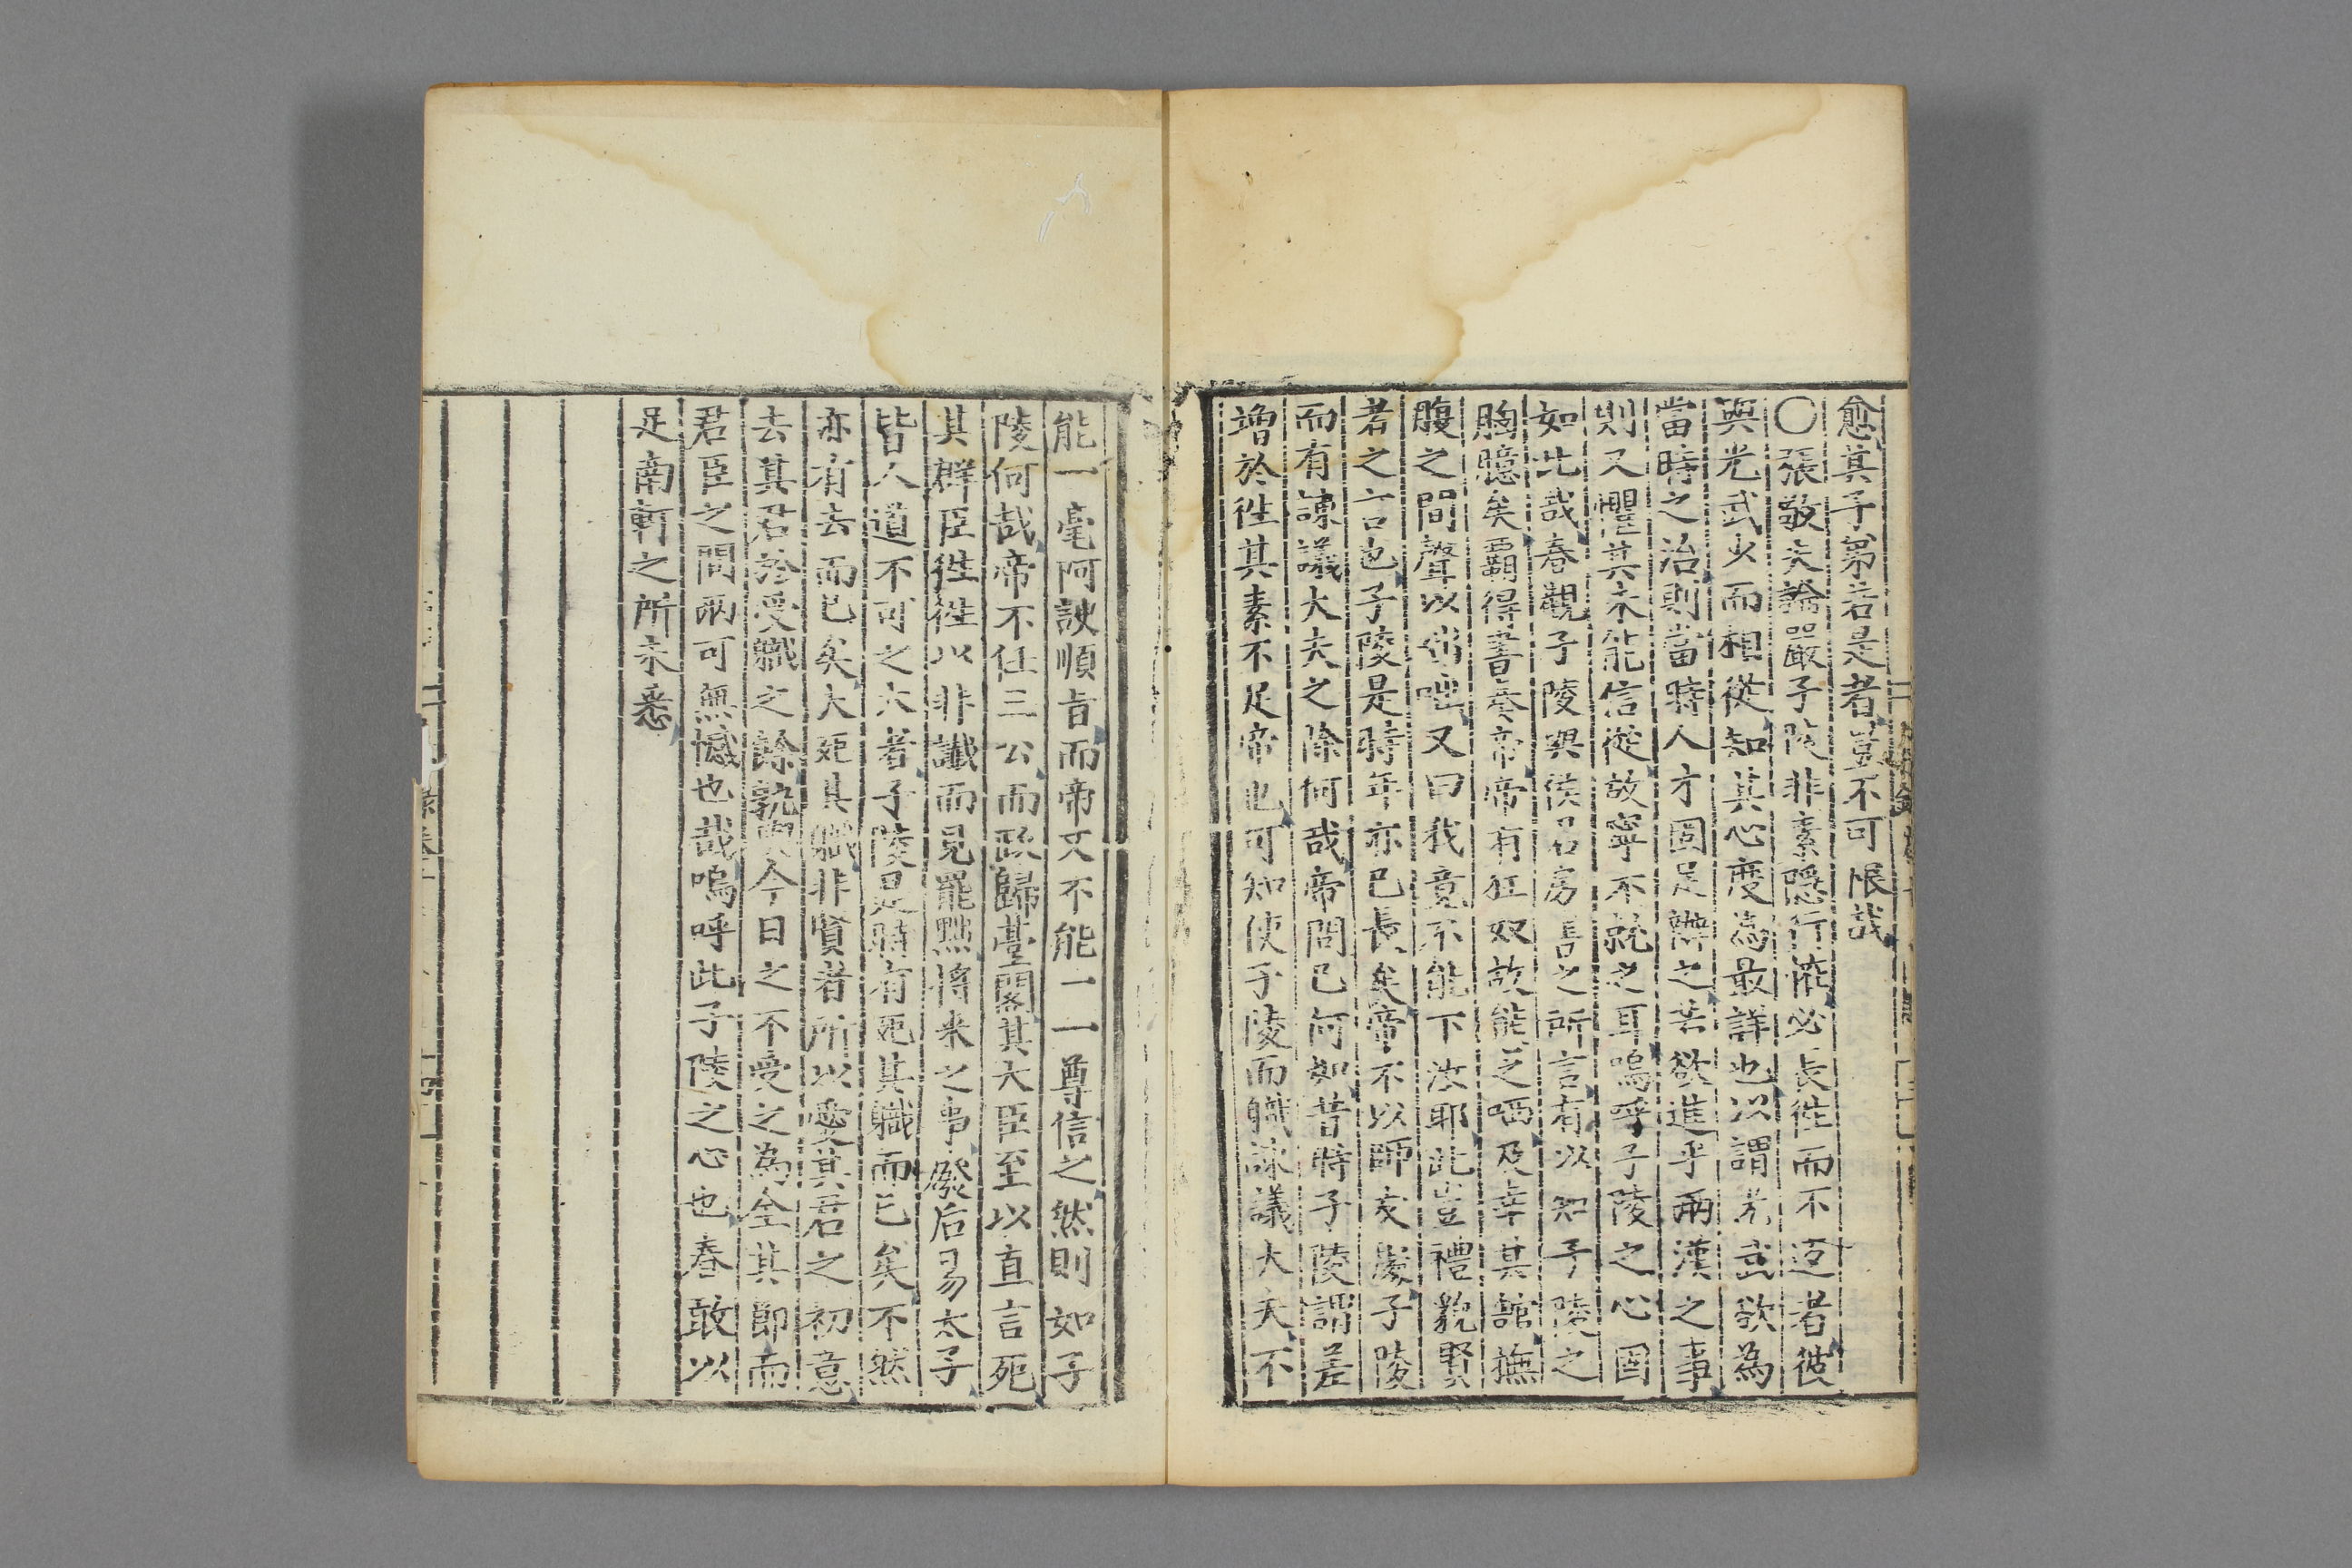 愈其子第若是者豈不可恨哉
〇張敬夫論嚴子陵非素隱行怪必長徃而不返者彼
與光武少而相從知其心度為最詳也以謂光武欲為
當時之治則當時人才固足辦之若欲進乎兩漢之事
則又懼其未能信從故寧不就之耳嗚呼子陵之心固
如此哉春觀子陵與侯君房書之所言有以知子陵之
胸臆矣覇得書奏帝帝有狂奴故態之哂及幸其舘撫
腹之間聲以咄咄又曰我竟不能下汝耶此豈禮貌賢
者之言也子陵是時年亦已長矣帝不以師友處子陵
而有諫議大夫之除何哉帝問已何如昔時子陵謂差
增於徃其素不足帝也可知使子陵而職諫議大夫不
能一毫阿諛順旨而帝又不能一一尊信之然則如子
陵何哉帝不任三公而政歸臺閣其大臣至以直言死
其群臣徃徃以非讖而見罷黜將来之事廢后易太子
皆人道不可之大者子陵是時有死其職而已矣不然
亦有去而已矣大死其職非賢者所以愛其君之初意
去其君於受職之餘孰與今日之不受之為全其節而
君臣之間兩可無憾也哉嗚呼此子陵之心也春敢以
足南軒之所未悉